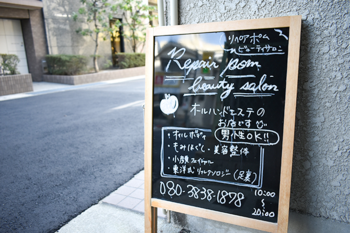 リペアポム
ビューティサロン
Repair pom
beauty salon
オールハンドエステの
お店です
男性OK!!
・オールボディ
・もみほぐし・美容整体
・小顔フェイシャル
・東洋式リフレクソロジー(足裏)
080-3838-1878
10:00
〜
20:00